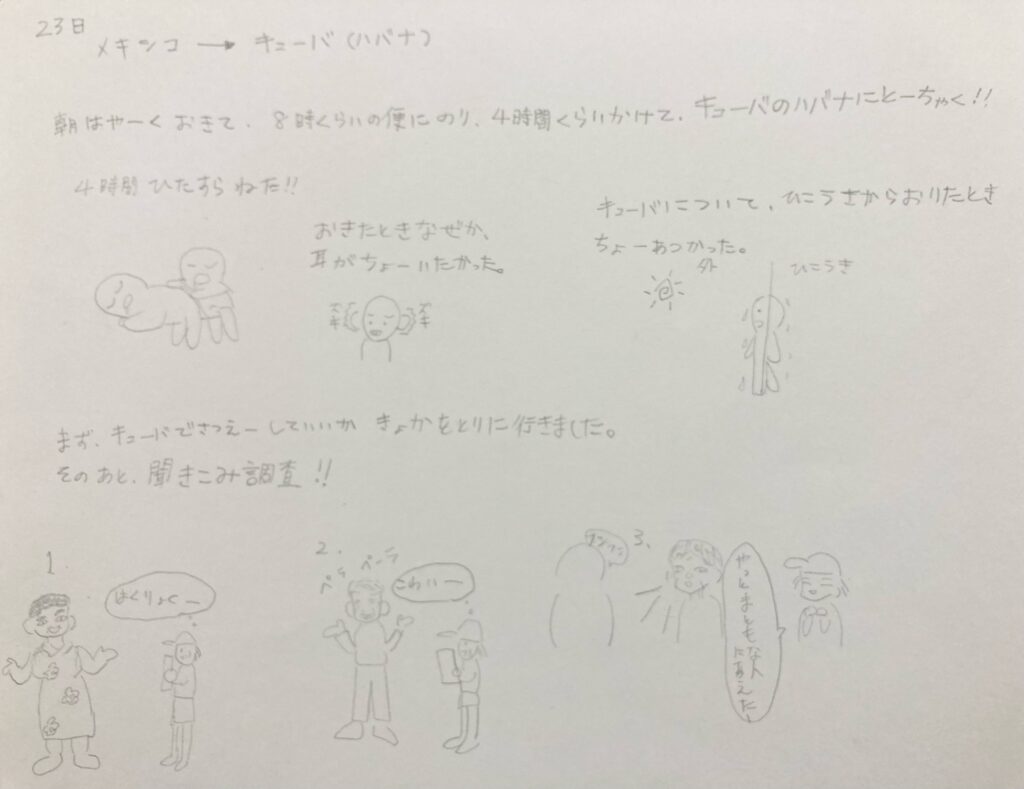 23日
メキシコ → キューバ(ハバナ)
朝はやーくおきて、8時くらいの便にのり、4時間くらいかけて、キューバのハバナにとーちゃく!!
4時間ひたすらねた!!
おきたときなぜか、
耳がちょーいたかった。
キューバについて、ひこうきからおりたとき
ちょーあつかった。
外
ひこうき
まず、キューバでさつえーしていいか きょかをとりに行きました。
そのあと、聞きこみ調査!!
1
はくりょくー
2.
ペラ ペーラ
こわいー
3.
フンフン
やっとまともな人
にあえた